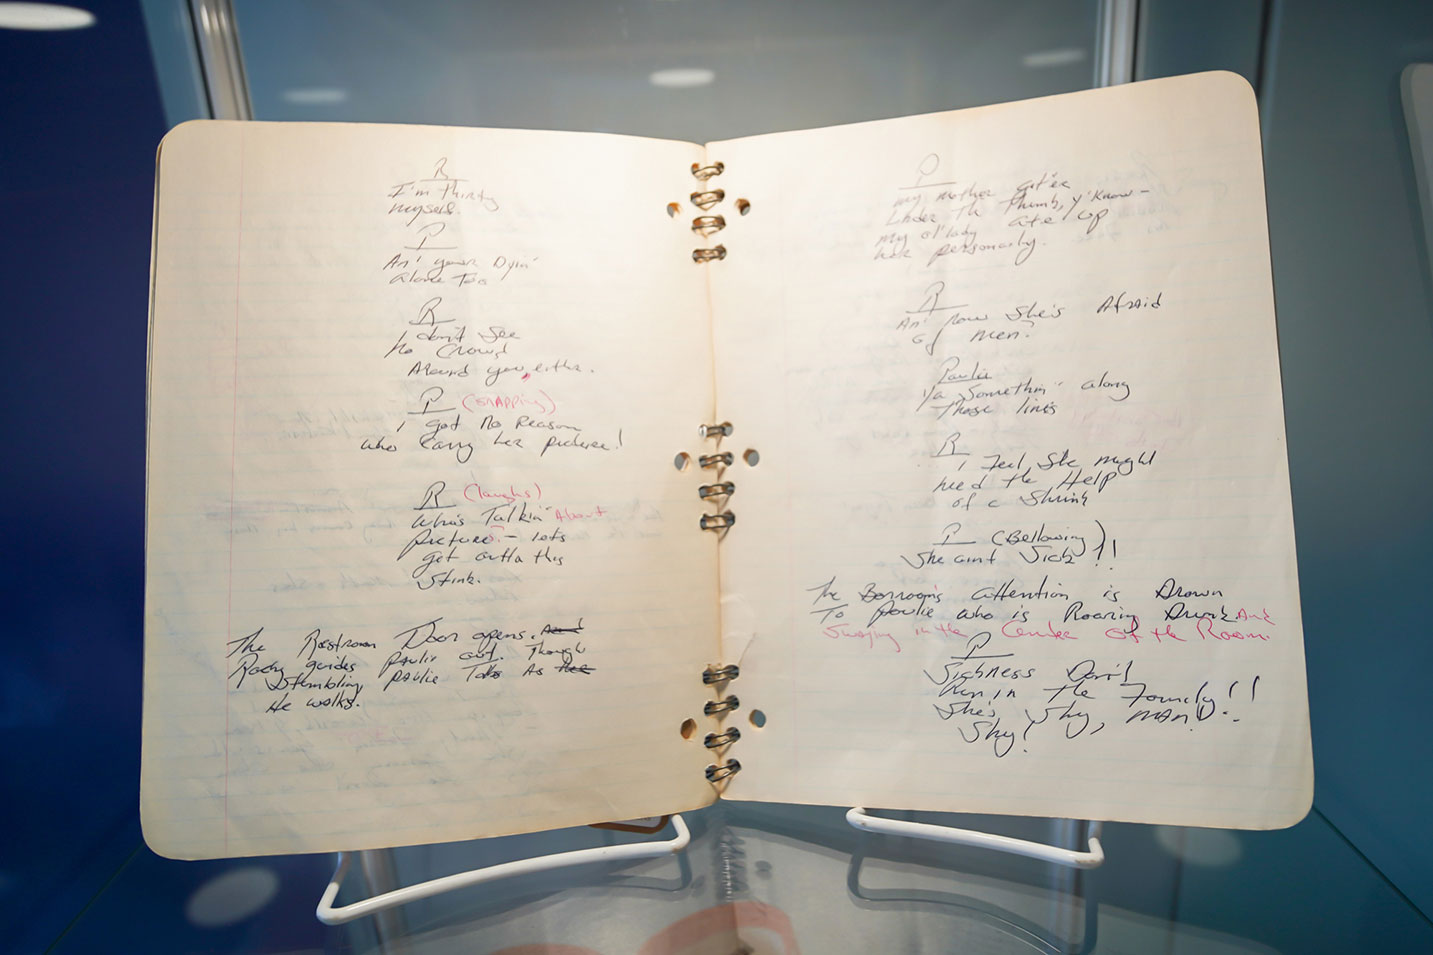 R
I'm thirty
myself.
P
An' your Dyin'
alone Too
R
I don't See
No Crowd
Around you, either.
P (SNAPPing)
I got No Reason
who Carry her picture!
R (laughs)
Who's Talkin' About
picture - lets
get outta this
Stink.
The Restroom Door opens. And
Rocky guides Paulie out. Though
Stumbling Paulie Talks As
He walks.
P
my mother
Under The Thumb, y'Know -
My ol' lady ate up
her personally.
R
An' now She's Afraid
of men?
Paulie
Ya Somethin' along
those lines
R
I Feel She might
need the Help
of a Shrink
P (Bellowing)
She aint Sick!!
The Barroom's attention is Drawn
To Paulie who is Roaring Drunk And
Swaying in the Center of the Room.
P
Sickness Don't
Run in The Family!!
She's Shy, MAN!!
Shy!